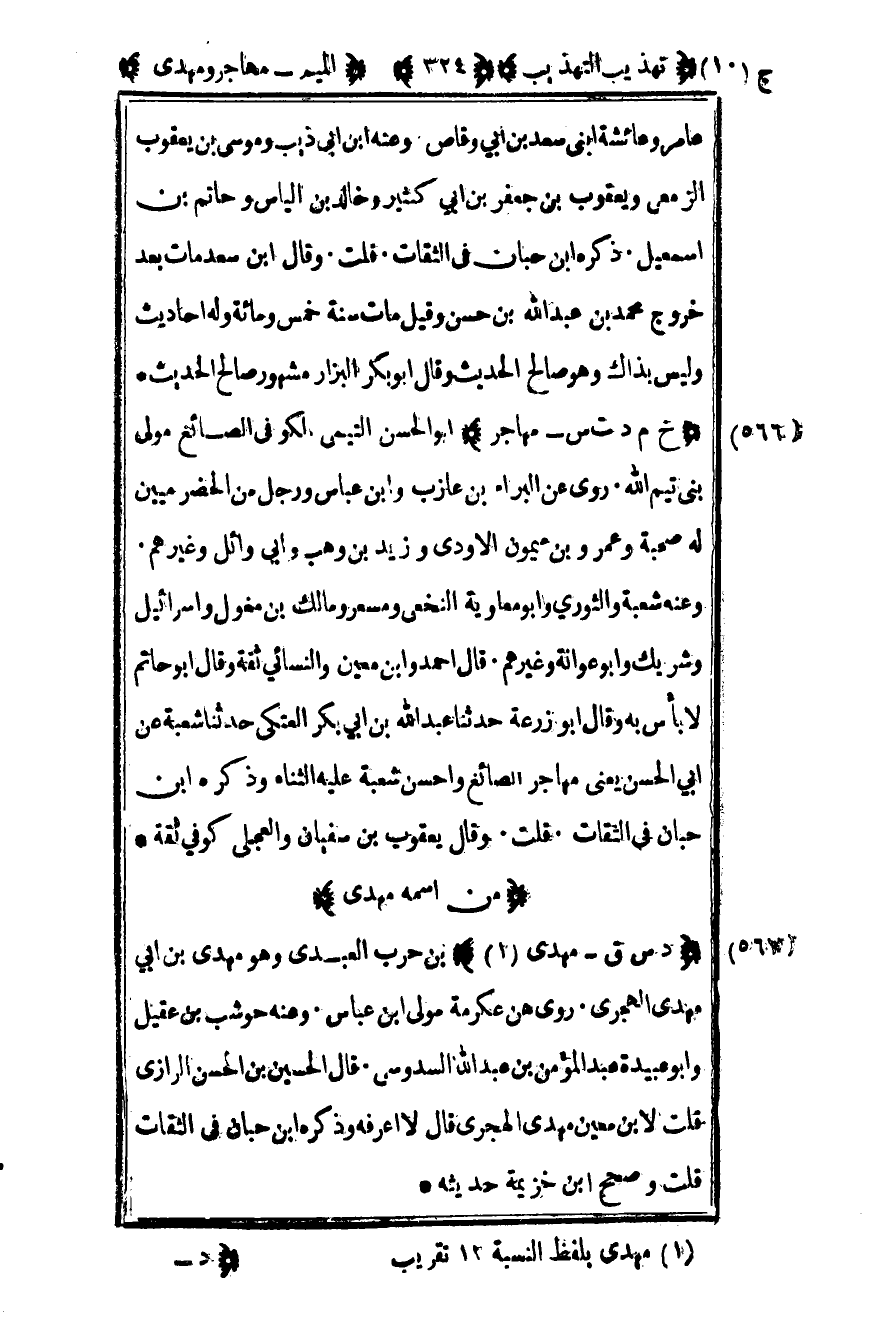 ج (١٠) ﴿ تهذيب التهذيب ﴾ ﴿ ٣٢٤ ﴾ ﴿ الميم – مهاجر ومهدى ﴾
عامر وعائشة ابنى سعد بن أبي وقاص · وعنه ابن ابى ذيب وموسى بن يعقوب
الزمعى ويعقوب بن جعفر بن ابي كثير وخالد بن الياس وحاتم بن
اسمعيل · ذكره ابن حبان فى الثقات · قلت · وقال ابن سعد مات بعد
خروج محمد بن عبدالله بن حسن وقيل مات سنة خمس ومائة وله احاديث
وليس بذاك وهو صالح الحديث وقال ابو بكر البزار مشهور صالح الحديث •
(٥٦٦) ﴿ خ م د ت س – مهاجر ﴾ ابو الحسن التيمى الكوفى الصائغ مولى
بنى تيم الله · روى عن البراء بن عازب وابن عباس ورجل من الحضرميين
له صحبة وعمرو بن ميمون الاودى وزيد بن وهب وابي وائل وغيرهم ·
وعنه شعبة والثوري وابو معاوية النخعى ومسعر ومالك بن مغول واسرائيل
وشريك وابو عوانة وغيرهم · قال احمد وابن معين والنسائي ثقة وقال ابو حاتم
لا بأس به وقال ابو زرعة حدثنا عبدالله بن ابي بكر العتكى حدثنا شعبة عن
ابي الحسن يعنى مهاجر الصائغ واحسن شعبة عليه الثناء وذكره ابن
حبان في الثقات · قلت · وقال يعقوب بن سفيان والعجلى كوفي ثقة •
﴿ من اسمه مهدى ﴾
(٥٦٧) ﴿ د س ق – مهدى (١) ﴾ بن حرب العبدى وهو مهدى بن ابي
مهدى الهجرى · روى عن عكرمة مولى ابن عباس · وعنه حوشب بن عقيل
وابو عبيدة عبد المؤمن بن عبد الله السدوسى · قال الحسين بن الحسن الرازى
قلت لابن معين مهدى الهجرى قال لا اعرفه وذكره ابن حبان فى الثقات
قلت وصحح ابن خزيمة حديثه •
(١) مهدى بلفظ النسبة ١٢ تقريب ﴿ د –